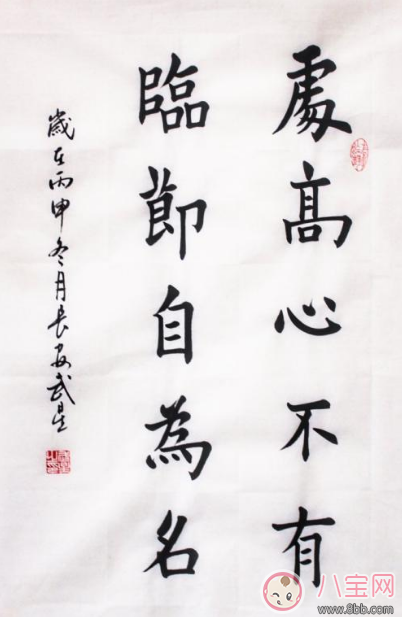 處高心不有
臨節自為名
歲在丙申冬月長安武星
八宝网
www.8bb.com